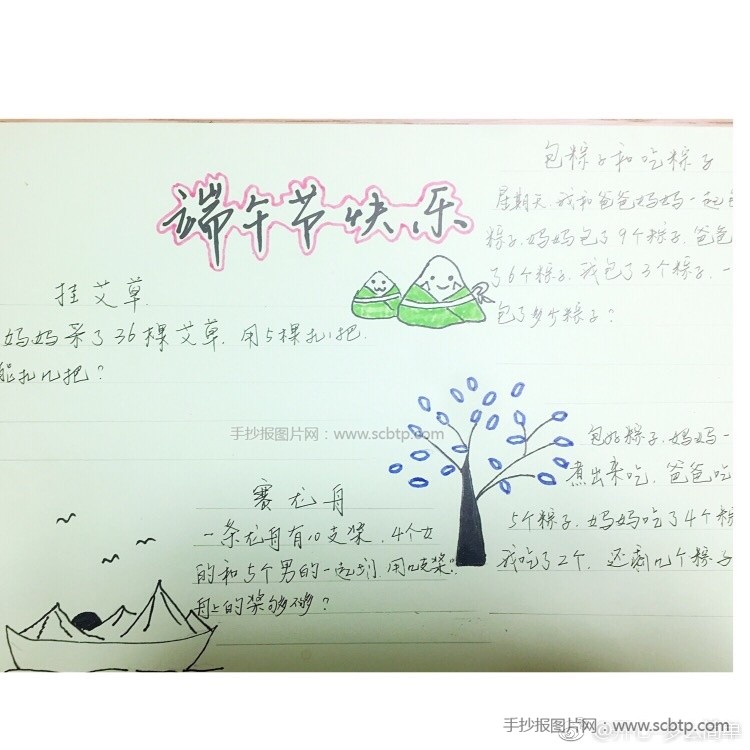 端午节快乐
包粽子和吃粽子
星期天,我和爸爸妈妈一起包
粽子.妈妈包了9个粽子.爸爸
了6个粽子.我包了3个粽子.一
包了多少个粽子?
挂艾草.
妈妈采了36棵艾草.用5棵扎1把.
能扎几把?
手抄报图片网:www.scbtp.com
包好粽子.妈妈一
煮出来吃.爸爸吃
5个粽子.妈妈吃了4个粽
我吃了2个.还剩几个粽子
赛龙舟
一条龙舟有10支桨.4个女
的和5个男的一起划.用
舟上的桨够不够?
手抄报图片网:www.scbtp.com